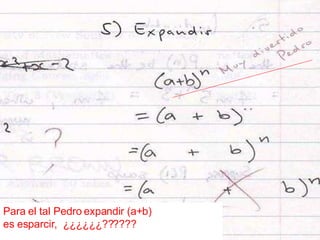 5) Expandir
x³+x-2
(a+b)ⁿ
Muy divertido
Pedro
= (a + b)ⁿ
2
?
=(a + b)ⁿ
=(a + b)ⁿ
Para el tal Pedro expandir (a+b)
es esparcir, ¿¿¿¿¿¿??????